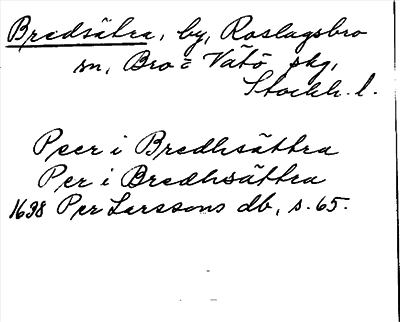 Bredsätra, by, Roslagsbro
sn, Bro= Vätö skg,
Stockh. l.
Peer i Bredhsättra
Per i Bredhsättra
1638 Per Larssons db, s. 65.